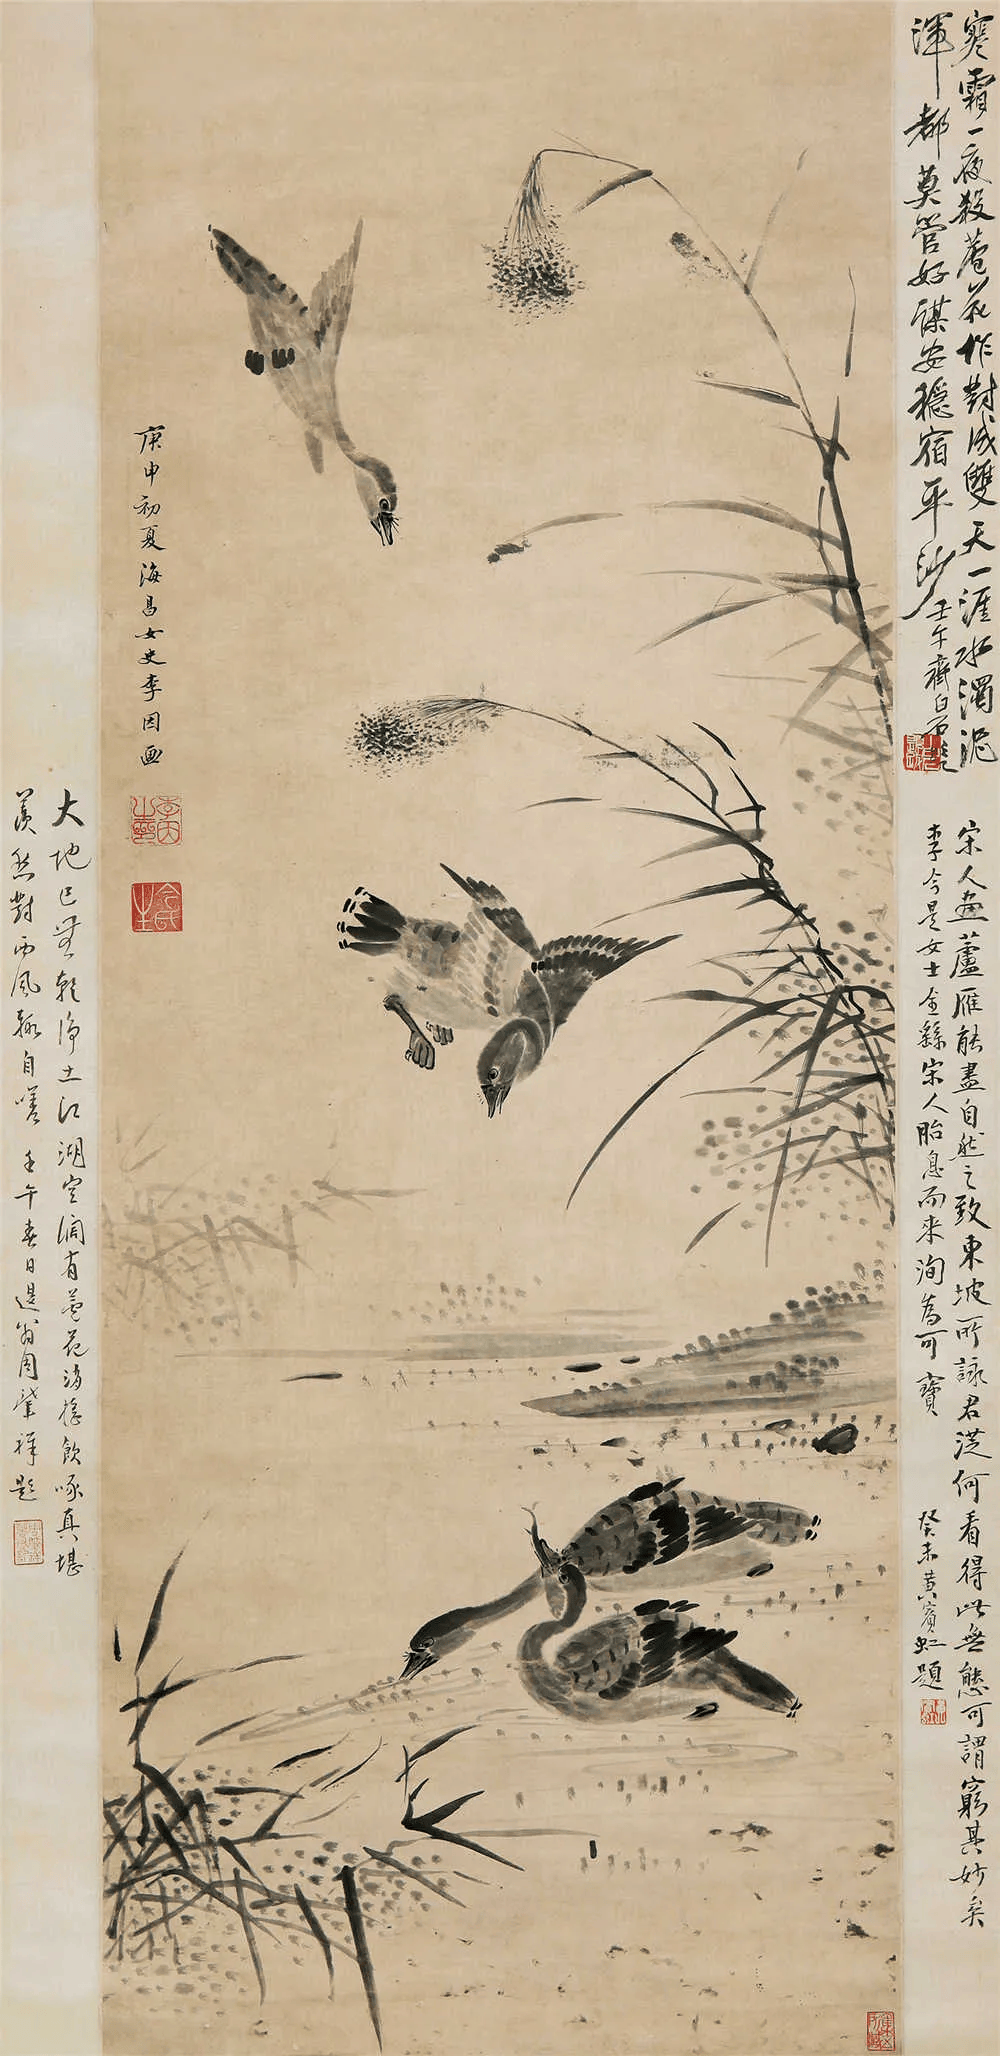 寒霜一夜殺蘆花作對成雙天一涯水濁泥
渾都莫管好謀安穩宿平沙
壬午齊白石題
宋人畫蘆雁能盡自然之致東坡所詠君從何看得此無態可謂窮其妙矣
李今是女士全繇宋人胎息而來洵為可寶
癸未黃賓虹題
庚申初夏海昌女史李因画
李因之印
大地已無乾淨土江湖空闊有蘆花逍遙飲啄真堪
羨愁對西風輒自嗟 壬午春日退翁周肇祥題